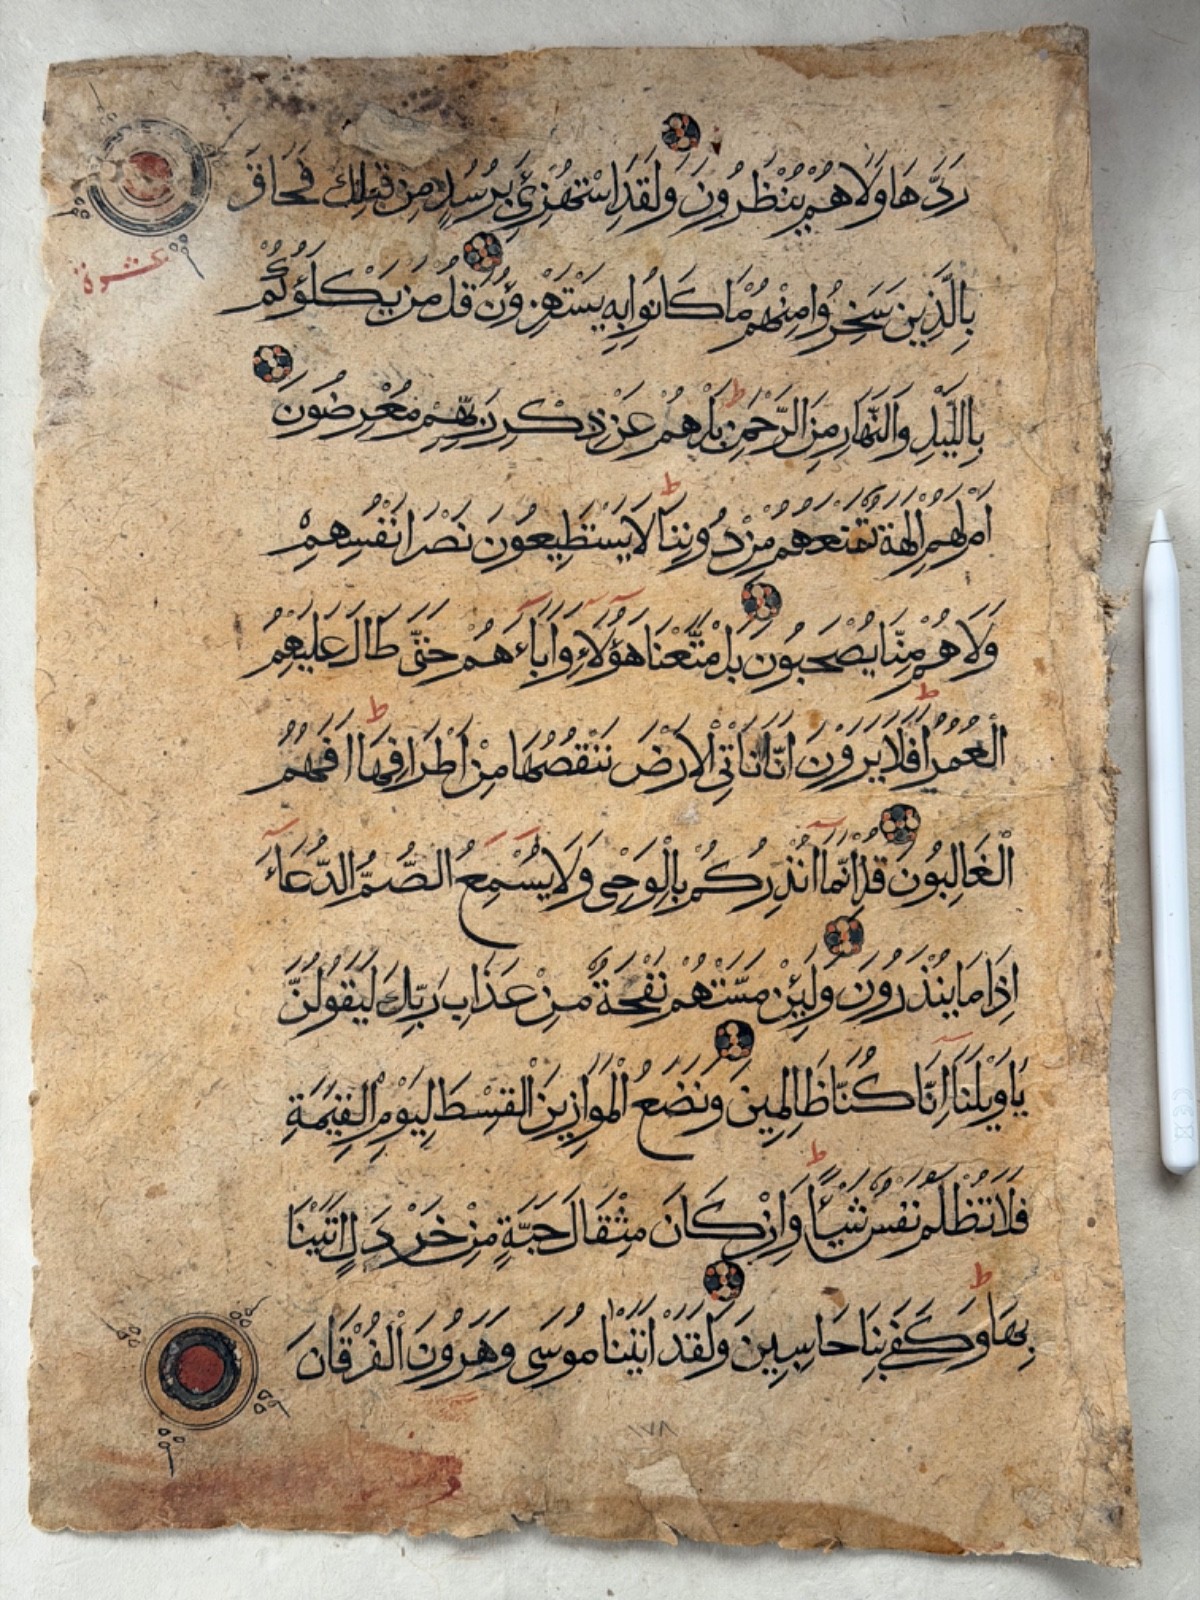 رَدَّهَا وَلَا هُمْ يُنْظَرُونَ وَلَقَدِ اسْتُهْزِئَ بِرُسُلٍ مِنْ قَبْلِكَ فَحَاقَ
عشرة
بِالَّذِينَ سَخِرُوا مِنْهُمْ مَا كَانُوا بِهِ يَسْتَهْزِؤُنَ قُلْ مَنْ يَكْلَؤُكُمْ
بِاللَّيْلِ وَالنَّهَارِ مِنَ الرَّحْمَنِ ط بَلْ هُمْ عَنْ ذِكْرِ رَبِّهِمْ مُعْرِضُونَ
اَمْ لَهُمْ اٰلِهَةٌ تَمْنَعُهُمْ مِنْ دُونِنَا ط لَا يَسْتَطِيعُونَ نَصْرَ اَنْفُسِهِمْ
وَلَا هُمْ مِنَّا يُصْحَبُونَ بَلْ مَتَّعْنَا هَؤُلَاءِ وَاٰبَاءَهُمْ حَتَّى طَالَ عَلَيْهِمُ
الْعُمُرُ ط اَفَلَا يَرَوْنَ اَنَّا نَاْتِي الْاَرْضَ نَنْقُصُهَا مِنْ اَطْرَافِهَا ط اَفَهُمُ
الْغَالِبُونَ قُلْ اِنَّمَا اُنْذِرُكُمْ بِالْوَحْيِ وَلَا يَسْمَعُ الصُّمُّ الدُّعَاءَ
اِذَا مَا يُنْذَرُونَ وَلَئِنْ مَسَّتْهُمْ نَفْحَةٌ مِنْ عَذَابِ رَبِّكَ لَيَقُولُنَّ
يَا وَيْلَنَا اِنَّا كُنَّا ظَالِمِينَ وَنَضَعُ الْمَوَازِينَ الْقِسْطَ لِيَوْمِ الْقِيٰمَةِ
فَلَا تُظْلَمُ نَفْسٌ شَيْـًٔا ط وَاِنْ كَانَ مِثْقَالَ حَبَّةٍ مِنْ خَرْدَلٍ اَتَيْنَا
بِهَا ط وَكَفَى بِنَا حَاسِبِينَ وَلَقَدْ اٰتَيْنَا مُوسَى وَهَرُونَ الْفُرْقَانَ
١٧٨